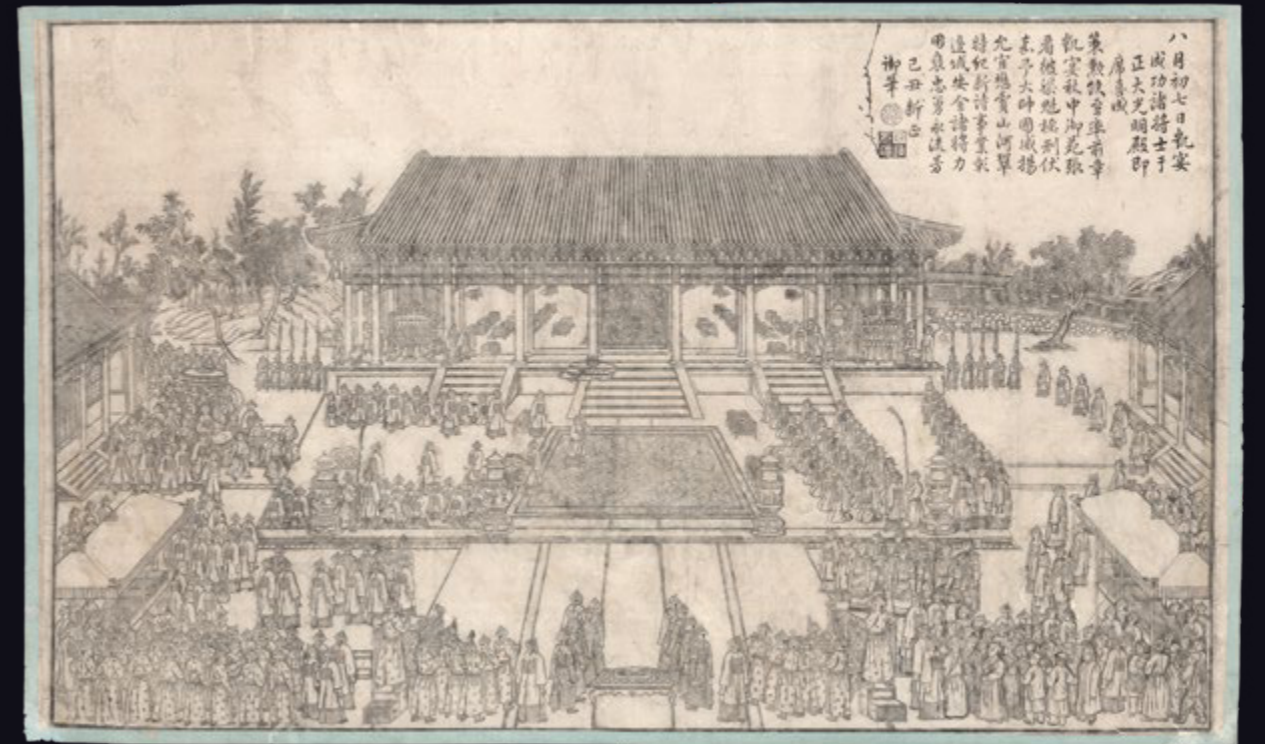 八月初七日凱宴
成功諸將士于
正大光明殿即
席喜成
策勲飲至率前章
凱宴秋中御苑張
看彼渠魁刑伏
嘉予大帥國威揚
允宜懋賞山河鞏
特紀新詩事業彰
邊城安諸將力
用褒忠勇永流芳
己丑新正
御筆